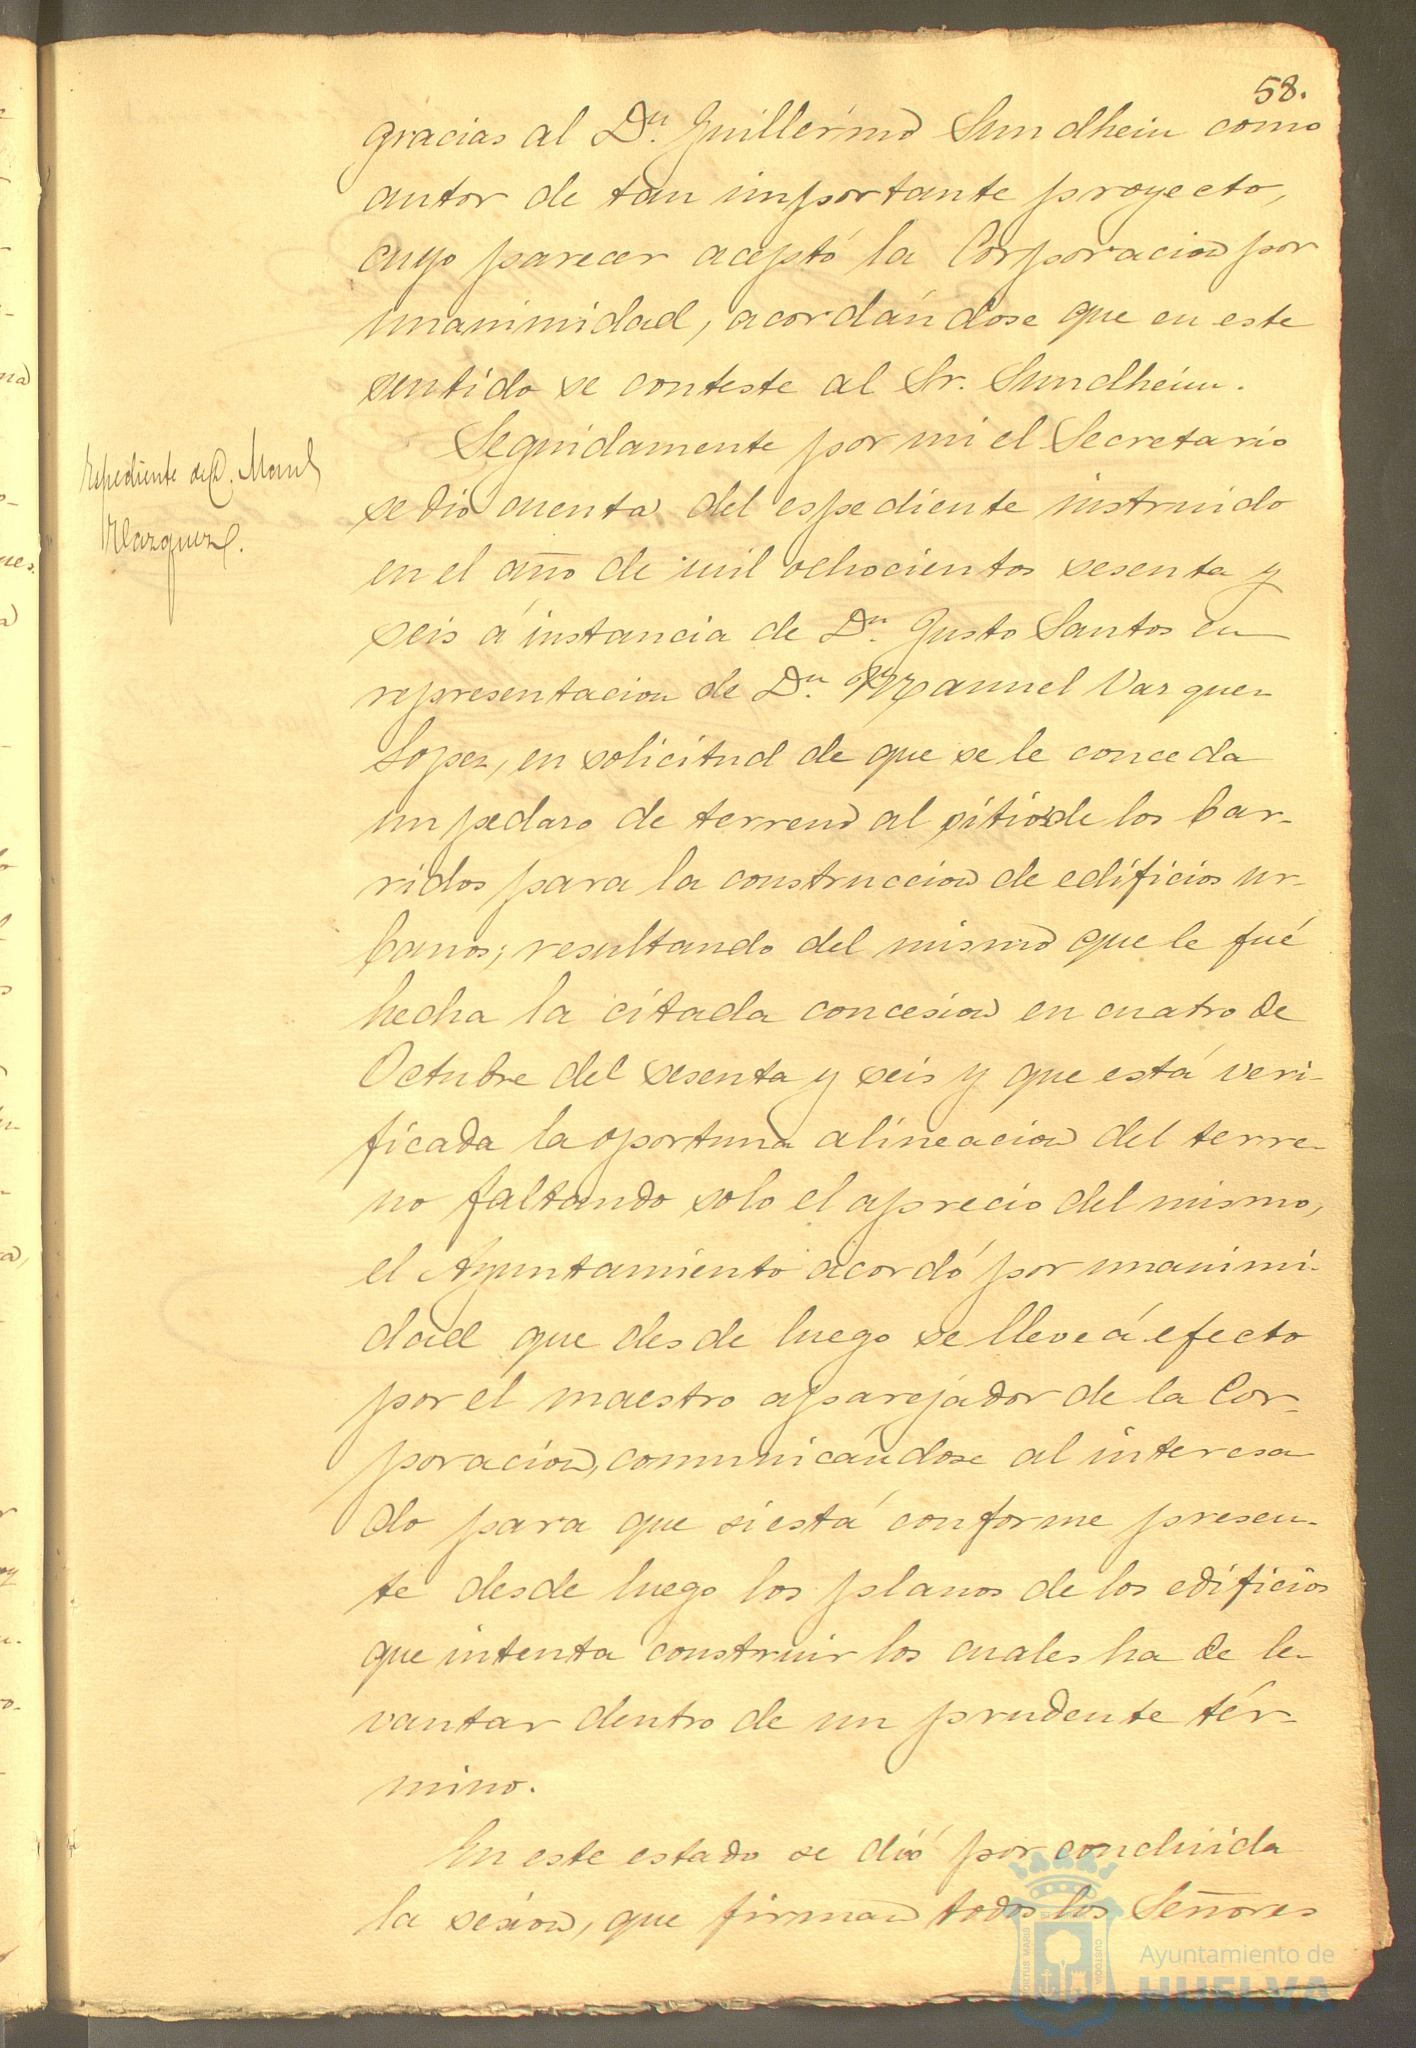 58.
gracias al Dn. Guillermo Sundheim como
autor de tan importante proyecto,
cuyo parecer aceptó la Corporacion por
unanimidad, acordándose que en este
sentido se conteste al Sr. Sundheim.
Espediente de D. Manl
Vazquez.
Seguidamente por mi el Secretario
se dió cuenta del espediente instruido
en el año de mil ochocientos sesenta y
seis á instancia de Dn. Justo Santos en
representacion de Dn. Manuel Vazquez
Lopez, en solicitud de que se le conceda
un pedazo de terreno al sitio de los bar-
ridos para la construccion de edificios ur-
banos; resultando del mismo que le fué
hecha la citada concesion en cuatro de
Octubre del sesenta y seis y que está veri-
ficada la oportuna alineacion del terre-
no faltando solo el aprecio del mismo,
el Ayuntamiento acordó por unanimi-
dad que desde luego se lleve á efecto
por el maestro aparejador de la Cor-
poracion, comunicándose al interesa
do para que si está conforme presen-
te desde luego los planos de los edificios
que intenta construir los cuales ha de le-
vantar dentro de un prudente tér-
mino.
En este estado se dió por concluida
la sesion, que firman todos los Señores
Ayuntamiento de
HUELVA